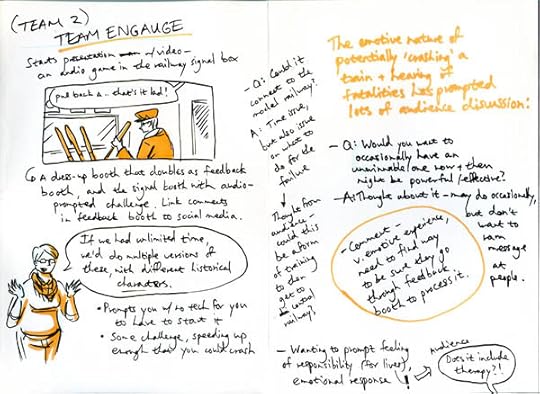 (TEAM 2)
TEAM ENGAUGE
Starts presentation w/video-
an audio game in the railway signal box
pull back 2.. that's it lad!
a dress-up booth that doubles as feedback
booth, and the signal booth with audio-
prompted challenge. Link comments
in feedback booth to social media.
If we had unlimited time,
we'd do multiple versions of
these, with different historical
characters.
• Prompts you w/ no tech for you
to have to start it
• Some challenge, speeding up
enough that you could crash
- Q: Could it
connect to the
model railway?
A: Time issue,
but also issue
on what to
do for the
failure
Thought from
audience -
could this
be a form
of training
to then
get to
control
railway!
The emotive nature of
potentially 'crashing' a
train + hearing of
fatalities has prompted
lots of audience discussion!
- Q: Would you want to
occasionally have an
unwinnable one now + then
might be powerful/effective?
- A: Thought about it - may do occasionally,
but don't
want to
ram
message
at
people.
- Comment -
v. emotive experience,
need to find way
to be sure they go
through feedback
booth to process it.
- Wanting to prompt feeling
of responsibility (for lives),
emotional response!
Audience
Does it include
therapy?!